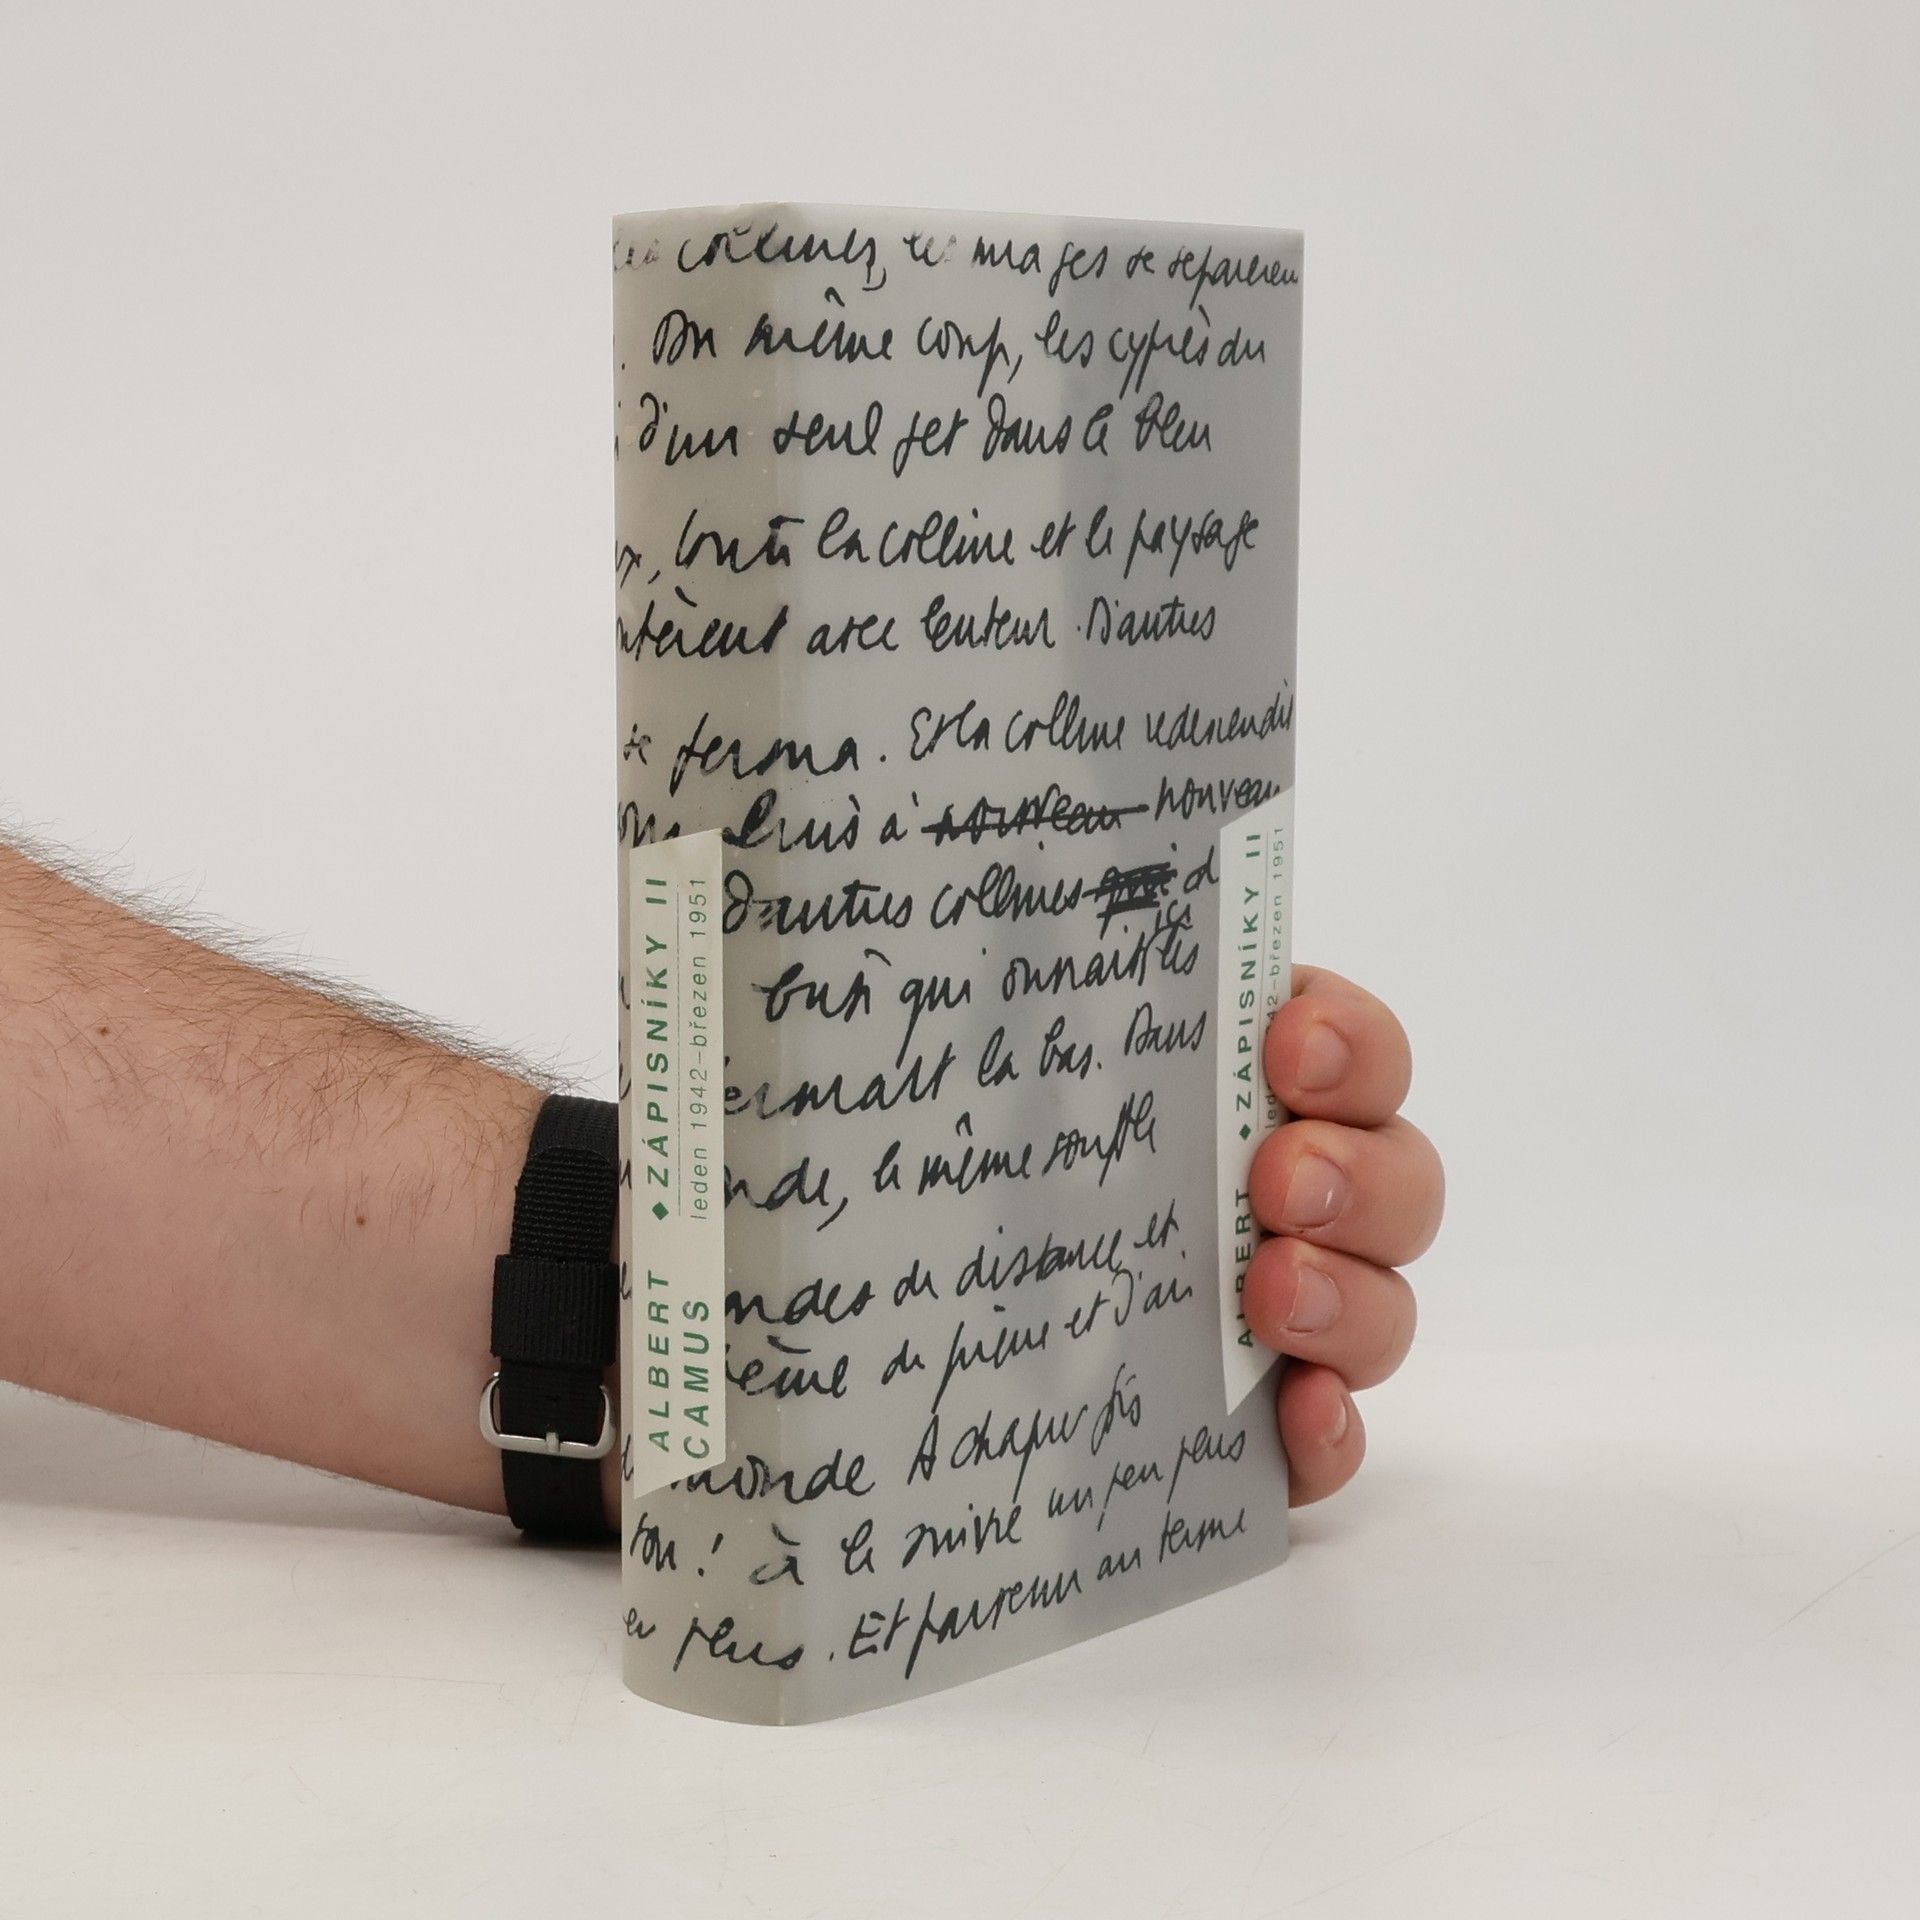 collines, les nuages se séparèren
. Du même coup, les cyprès du
d'un seul jet dans le bleu
, toute la colline et le paysage
ntèrent avec lenteur. D'autres
se ferma. Et la colline redescendit
à nouveau nouveau
D'autres collines qui d
ici les
qui
là bas. Dans
nde, le même souffle
ndes de distance et
ème de et d'ai
monde A chaque fois
! à le suivre un peu plus
eu plus. Et parvenu au terme
ALBERT
CAMUS
◆ ZÁPISNÍKY II
leden 1942–březen 1951
ALBERT
◆ ZÁPISNÍKY II
led 42–březen 1951